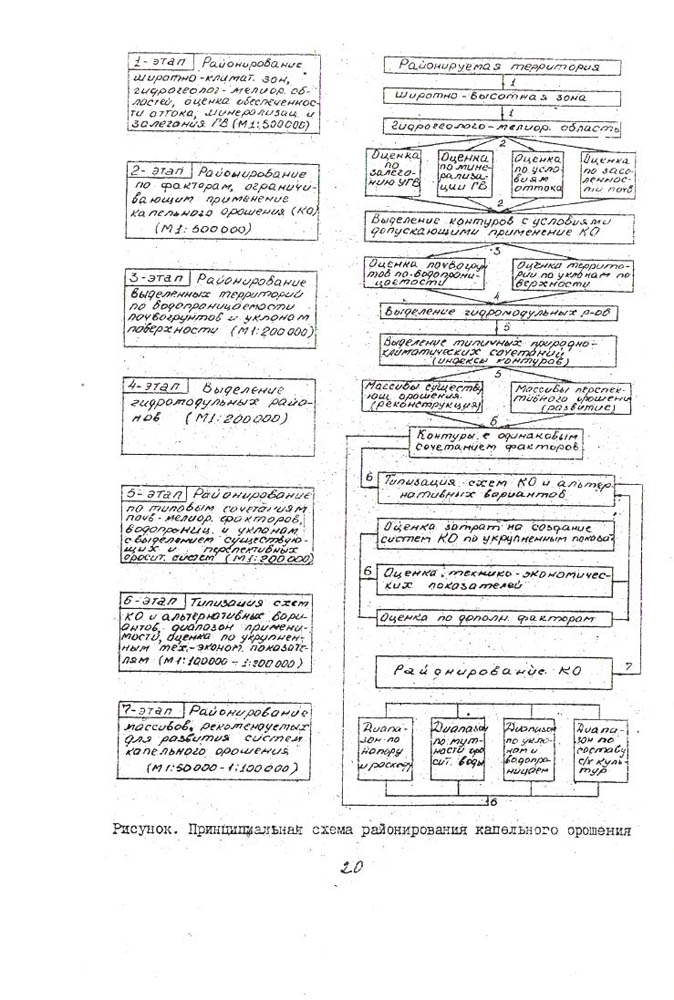 1-этап Районирование
широтно-климат. зон,
гидрогеолог-мелиор. об-
ластей, оценка обеспеченнос-
ти оттока, минерализац и
залегания ГВ (М1:500000)
2-этап Районирование
по факторам, ограничи-
вающим применение
капельного орошения (КО)
(М1:500000)
3-этап Районирование
выделенных территорий
по водопроницаемости
почвогрунтов и уклонам
поверхности (М1:200000)
4-этап Выделение
гидромодульных райо-
нов (М1:200000)
5-этап Районирование
по типовым сочетаниям
почв-мелиор. факторов,
водопрониц. и уклонам
с выделением существую-
щих и перспективных
оросит. систем (М1:200000)
6-этап Типизация схем
КО и альтернативных вари-
антов, диапазон примени-
мости, оценка по укрупнен-
ным тех.-эконом. показате-
лям (М1:100000-1:200000)
7-этап Районирование
массивов, рекомендуемых
для развития систем
капельного орошения
(М1:50000-1:100000)
Районируемая территория
1
Широтно-высотная зона
1
Гидрогеолого-мелиор. область
2
Оценка
по
залега-
нию УГВ
Оценка
по мине-
рализа-
ции ГВ
Оценка
по усло-
виям
оттока
Оценка
по засо-
ленност-
ти почв
2
Выделение контуров с условиями
допускающими применение КО
3
Оценка почвогрун-
тов по водопрони-
цаемости
Оценка террито-
рии по уклонам по-
верхности
4
Выделение гидромодульных р-ов
5
Выделение типичных природно-
климатических сочетаний
(индексы контуров)
5
Массивы существу-
ющ орошения
(реконструкция)
Массивы перспек-
тивного орошени
(развитие)
6
Контуры с одинаковым
сочетанием факторов
6
Типизация схем КО и альтер-
нативных вариантов
Оценка затрат на создание
систем КО по укрупненным показа
6
Оценка технико-экономичес-
ких показателей
Оценка по дополн. факторам
Районирование КО
7
Диапа-
зон по
напору
и расходу
Диапазон
по мут-
ности оро
сит. воды
Диапазон
по укло-
нам и
водопро-
ницаем
Диапа-
зон по
составу
с/х куль-
тур
6
Рисунок. Принципиальная схема районирования капельного орошения
20